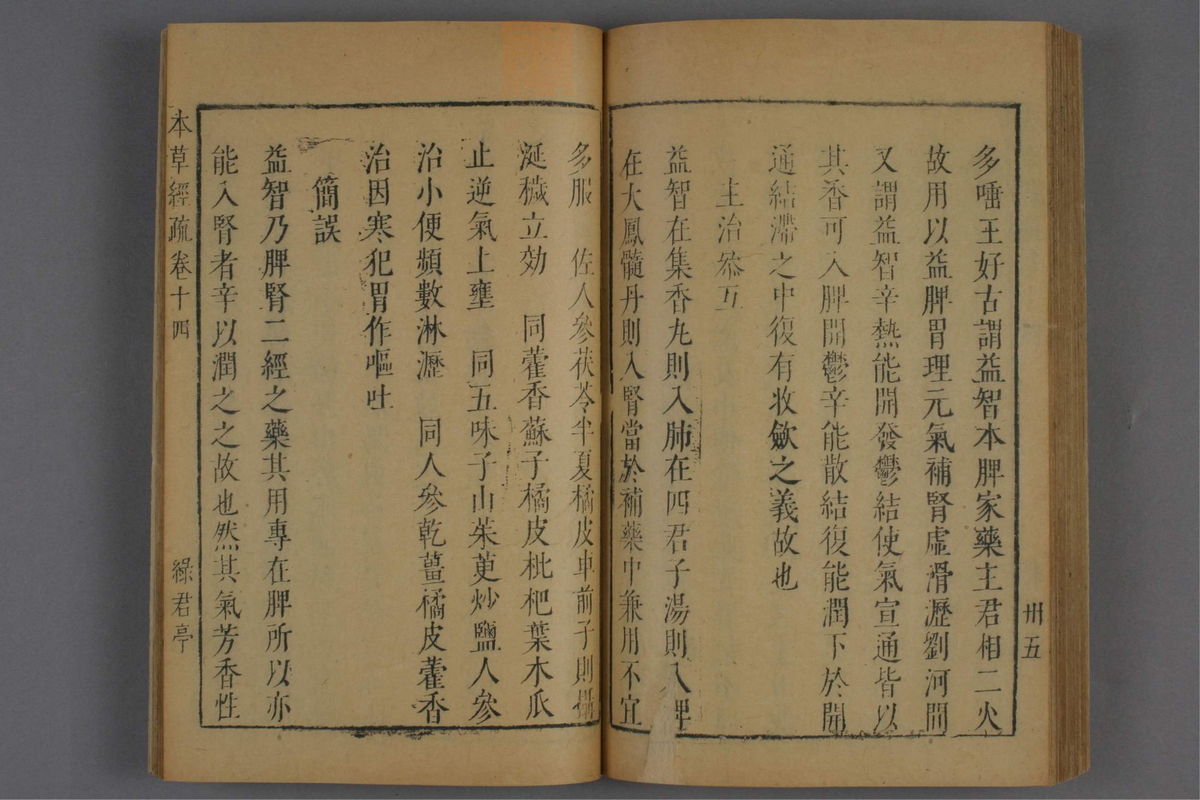 卅五
多唾王好古謂益智本脾家藥主君相二火
故用以益脾胃理元氣補腎虛滑瀝劉河間
又謂益智辛熱能開發鬱結使氣宣通皆以
其香可入脾開鬱辛能散結復能潤下於開
通結滯之中復有收斂之義故也
主治叅互
益智在集香丸則入肺在四君子湯則入脾
在大鳳髓丹則入腎當於補藥中兼用不宜
多服 佐人參茯苓半夏橘皮車前子則攝
涎穢立効 同藿香蘇子橘皮枇杷葉木瓜
止逆氣上壅 同五味子山茱萸炒鹽人參
治小便頻數淋瀝 同人參乾薑橘皮藿香
治因寒犯胃作嘔吐
簡誤
益智乃脾腎二經之藥其用專在脾所以亦
能入腎者辛以潤之之故也然其氣芳香性
本草經疏卷十四 綠君亭